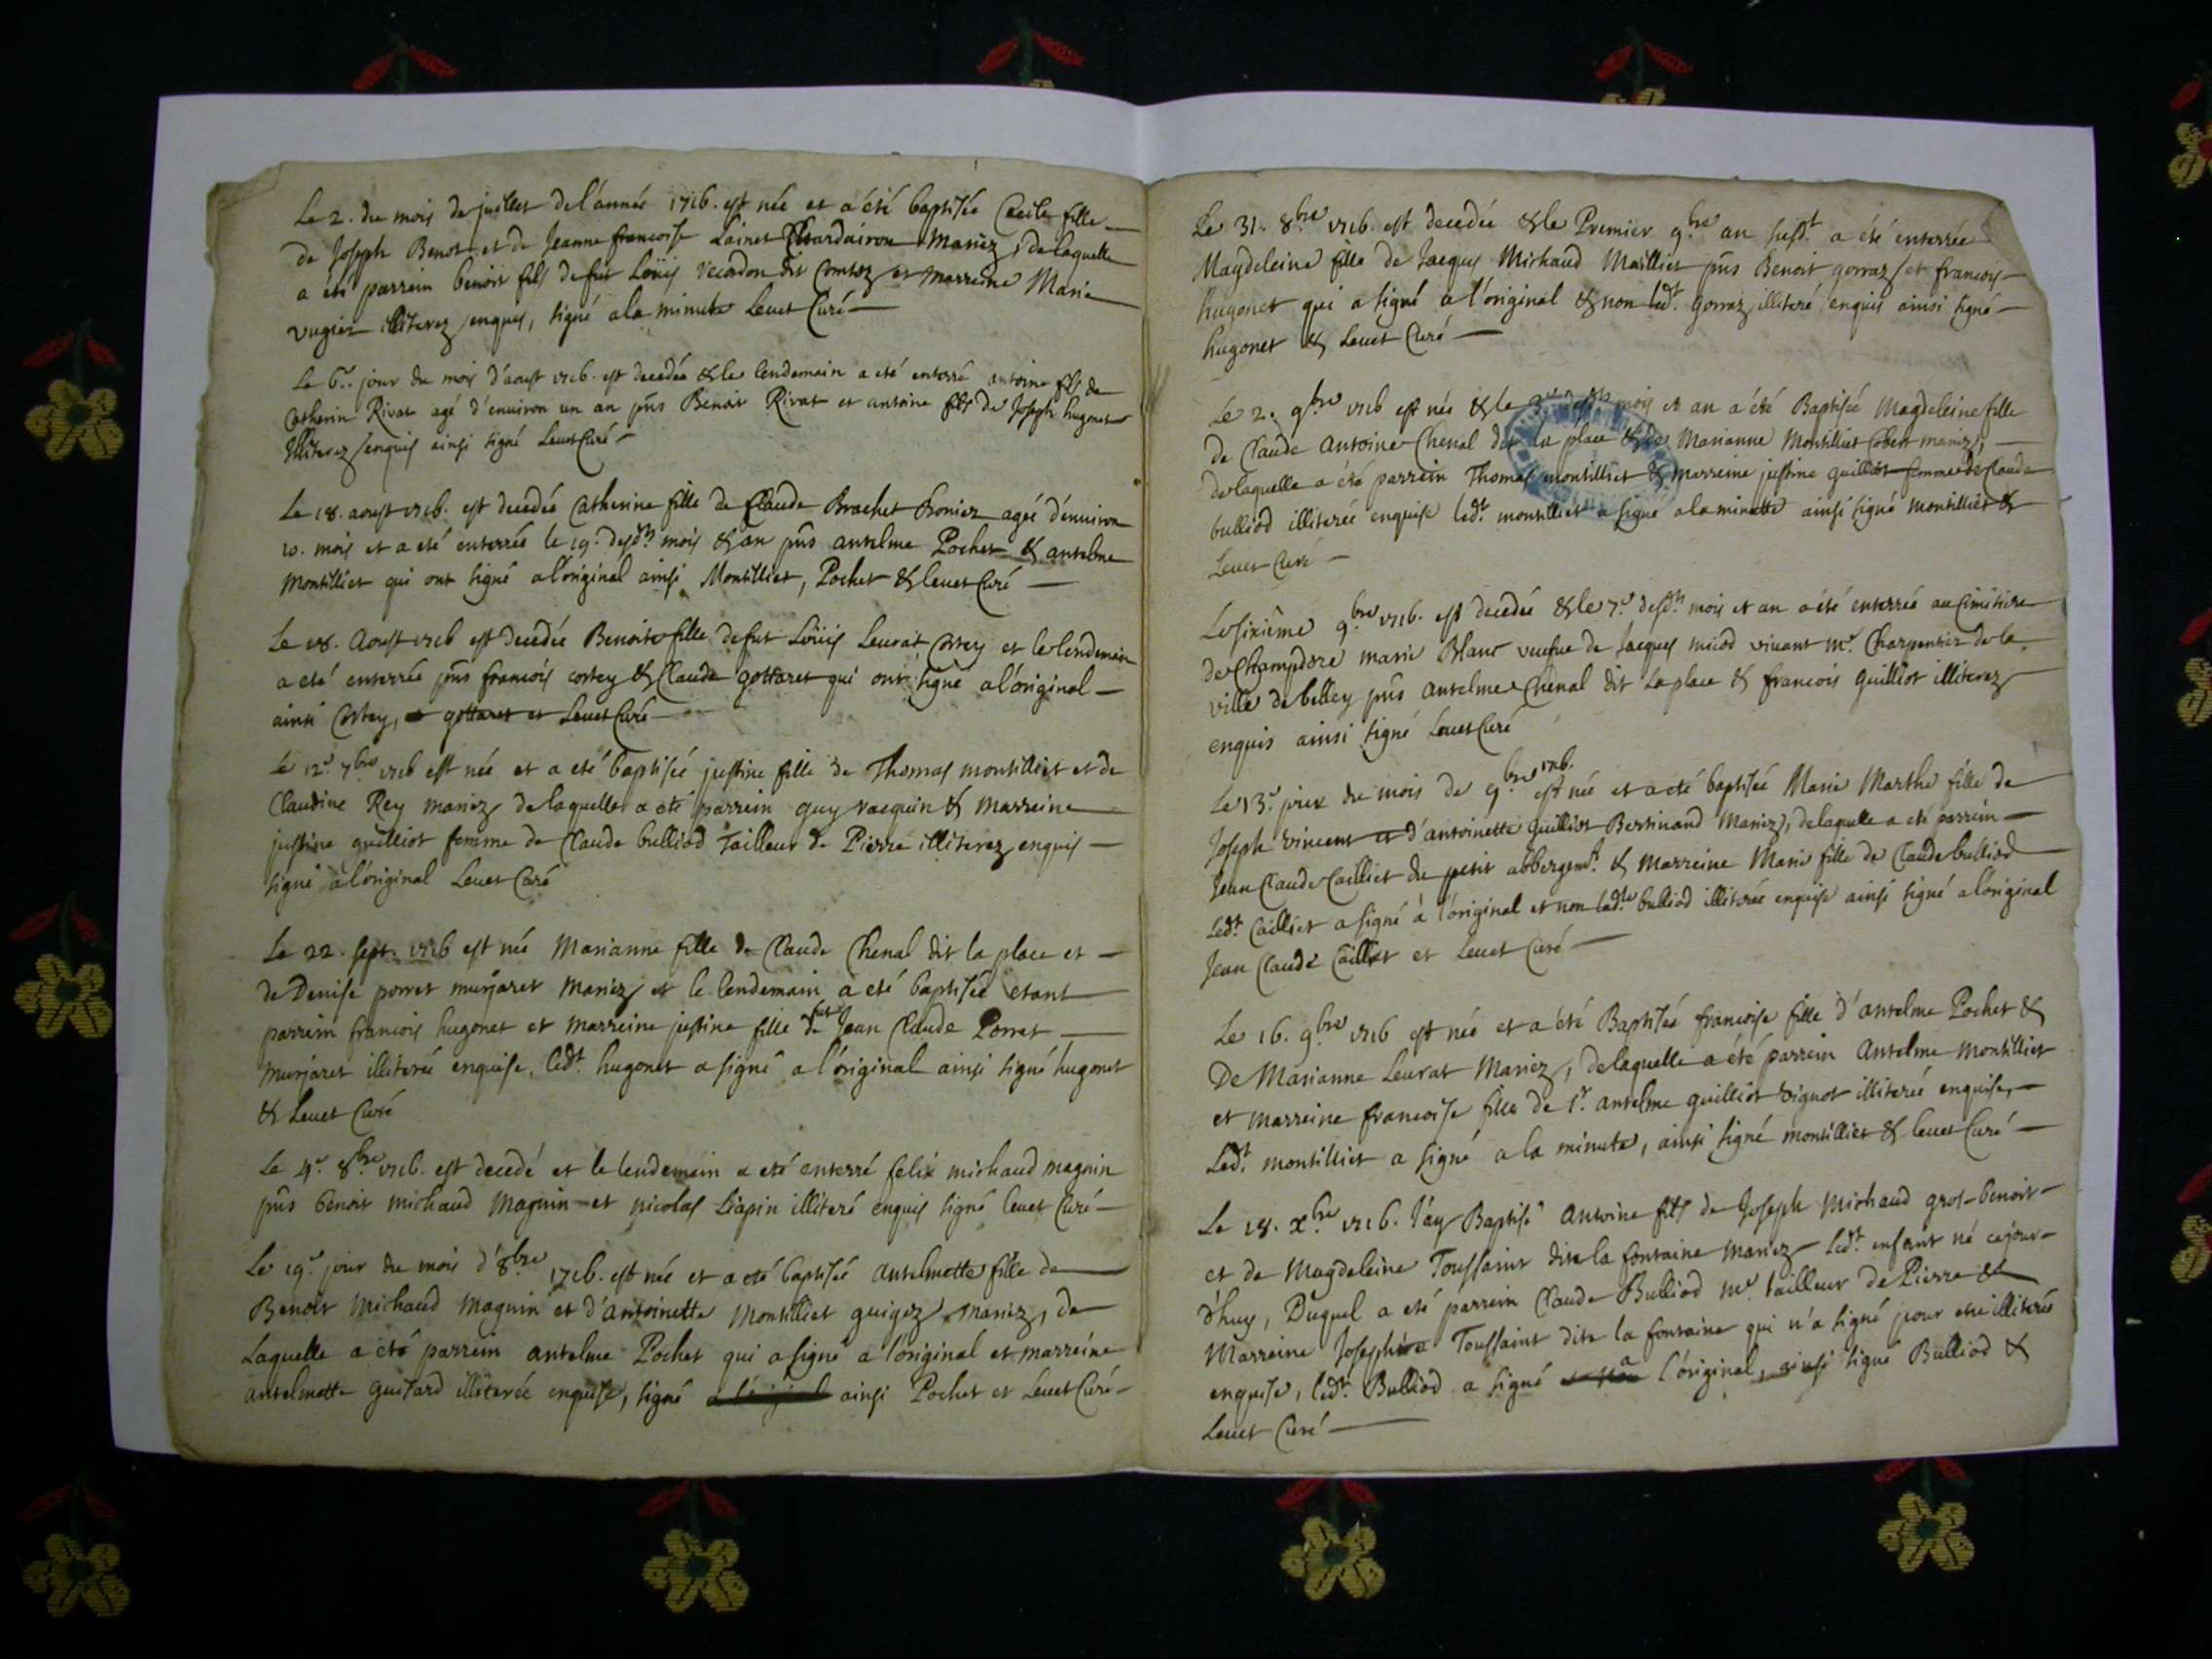 Le 2. du mois de juillet de l'année 1716. est née et a été baptisée Cecile fille
de Joseph Benot et de Jeanne francoise Lainet Chardairon Mariez, de laquelle
a été parrein benoit fils de fut Loüis dit Comtoz et marreine Marie
vugier illiterez enquis, signé a la minute Levet Curé
Le 6e. jour du mois d'aoust 1716. est decedée & le lendemain a eté enterré antoine fils de
Catherin Rivat agé d'environ un an pñs Benoit Rivat et antoine fils de Joseph hugonet
Illiterez enquis ainsi signé Levet Curé
Le 18. aoust 1716. est decedée Catherine fille de Claude Brachet Bronier agée d'environ
10. mois et a eté enterrée le 19. desdts mois & an pñs antelme Pochet & antelme
Montilliet qui ont signé a l'original ainsi Montilliet, Pochet & levet Curé
Le 28. Aoust 1716 est decedée Benoite fille de fut Loüis Levrat Cortey et le lendemain
a eté enterrée pñs francois cortey & Claude gottaret qui ont signé a l'original
ainsi Cortey, gottaret et Levet Curé
Le 12e 7bre 1716 est née et a eté baptisée justine fille de Thomas montilliet et de
Claudine Rey mariez de laquelle a eté parrein guy racquin & marreine
justine guilliot femme de Claude bulliod Tailleur de Pierre illiterez enquis
signé a l'original Levet Curé
Le 22. sept. 1716 est née Marianne fille de Claude Chenal dit la place et
de Denise porret murjaret Mariez et le lendemain a eté baptisée etant
parrein francois hugonet et marreine justine fille de fut Jean Claude Porret
Murjaret illiterée enquise, ledt. hugonet a signé a l'original ainsi signé hugonet
& Levet Curé
Le 4e. 8bre 1716. est decedé et le lendemain a eté enterré felix michaud magnin
pñs benoit michaud Magnin et nicolas Liapin illiteré enquis signé levet Curé
Le 19e. jour du mois d'8bre 1716. est née et a eté baptisée antelmette fille de
Benoit Michaud Magnin et d'antoinette Montilliet guigoz Mariez, de
Laquelle a eté parrein antelme Pochet qui a signé a l'original et marreine
antelmette guisard illiterée enquise, signé ainsi Pochet et Levet Curé
Le 31. 8bre 1716. est decedée & le Premier 9bre an susdt a été enterrée
Magdeleine fille de Jacques Michaud Mailliet pñs Benoit gorraz et francois
hugonet qui a signé a l'original & non ledt. gorraz illiteré enquis ainsi signé
hugonet & Levet Curé
Le 2. 9bre 1716 est née & le mois et an a été Baptisée Magdeleine fille
de Claude Antoine Chenal dit la place & de Marianne Montilliet Cobert mariez,
de laquelle a été parrein Thomas montilliet & marreine justine guilliot femme de Claude
bulliod illiterée enquise ledt. montilliet a signé a la minutte ainsi signé montilliet &
Levet Curé
Le sixiême 9bre 1716. est decedée & le 7e desdts mois et an a été enterrée au Cimitiere
de Champdoré marie Blanc veufve de Jacques miod vivant me. Charpentier de la
ville de belley pñs antelme Chenal dit La place & francois guilliot illiterez
enquis ainsi signé Levet Curé
Le 13e. jour du mois de 9bre 1716. est née et a eté baptisée Marie Marthe fille de
Joseph vincent et d'antoinette guilliot Bertinand Mariez, de laquelle a eté parrein
Jean Claude Cailliet du petit abbergemt. & Marreine Marie fille de Claude bulliod
Ledt. Cailliet a signé à l'original et non ladte bulliod illiterée enquise ainsi signé a l'original
Jean Claude Cailliet et Levet Curé
Le 16. 9bre 1716 est née et a été Baptisée francoise fille d'antelme Pochet &
De Marianne Levrat Mariez, de laquelle a été parrein Antelme montilliet
et marreine francoise fille de Sr. antelme guilliot vignot illiterée enquise,
Ledt. montilliet a signé a la minute, ainsi signé montilliet & levet Curé
Le 18. xbre 1716. J'ay Baptisé Antoine fils de Joseph Michaud gros-benoit
et de Magdeleine Toussaint dite la fontaine Mariez ledt. enfant né cejour-
d'huy, Duquel a eté parrein Claude Bulliod me. tailleur de Pierre &
Marreine Josephte Toussaint dite la fontaine qui n'a signé pour etre illiterée
enquise, ledt. Bulliod a signé a l'original, ainsi signé Bulliod &
Levet Curé